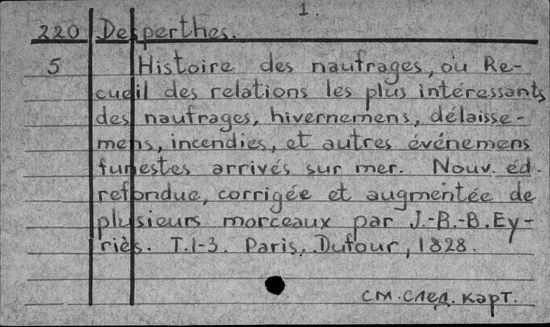 1.
220 Desperthes.
5 Histoire des naufrages, ou Re-
cueil des relations les plus intéressants
des naufrages, hivernemens, délaisse-
mens, incendies, et autres événemens
funestes arrivés sur mer. Nouv. éd.
refondue, corrigée et augmentée de
plusieurs morceaux par J.-B.-B. Ey-
riès. T.1-3. Paris, Dufour, 1828.
см. след. карт.